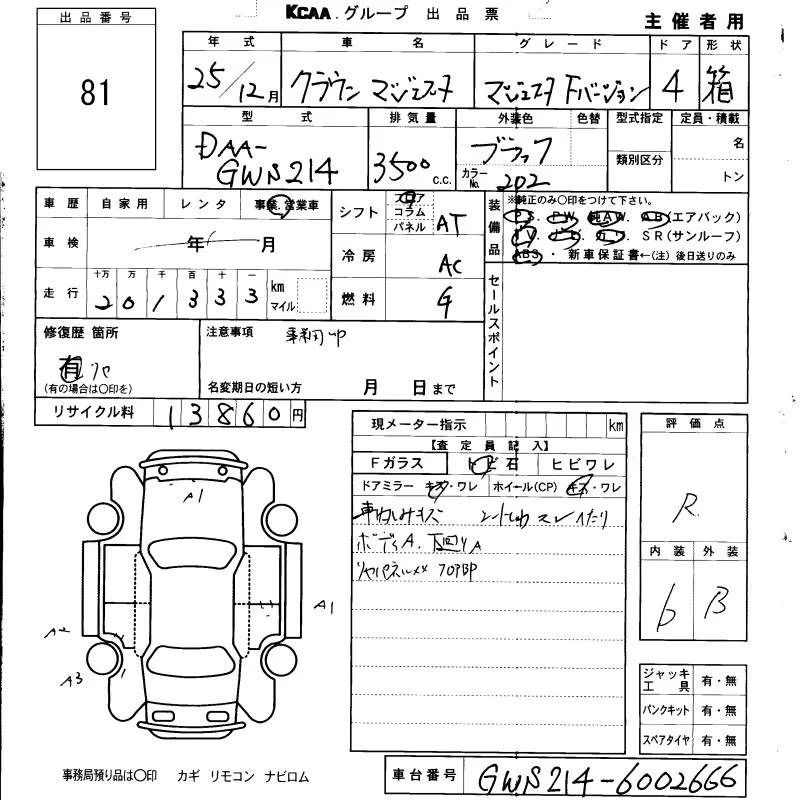 KCAA.グループ 出品票
主催者用
出品番号
81
年式 車名 グレード ドア 形状
25/12月 クラウン マジェスタ マジェスタ Fバージョン 4 箱
型式 排気量 外装色 色替 型式指定 定員・積載
DAA-GWS214 3500c.c. ブラック 名
カラーNo. 202 類別区分 トン
車歴 自家用 レンタ 事業,営業車
シフト フロア コラム パネル AT
装備品
※純正のみ〇印をつけて下さい。
PS. PW. 純AW. AB(エアバック)
TV. SR(サンルーフ)
ABS・新車保証書←(注)後日送りのみ
車検 年 月
冷房 AC
走行 十万 万 千 百 十 一
201333 km マイル
燃料 G
セールスポイント
修復歴 箇所
有
(有の場合は〇印を)
注意事項
名変期日の短い方 月 日まで
リサイクル料 13860円
現メーター指示 km
【査定員記入】
Fガラス トビ石 ヒビワレ
ドアミラー キズ・ワレ ホイール(CP) キズ・ワレ
車内しみキズ
ボディA. 下回りA
評価点
R
内装 外装
6 B
A1
A1
A2
A3
ジャッキ工具 有・無
パンクキット 有・無
スペアタイヤ 有・無
事務局預り品は〇印 カギ リモコン ナビロム
車台番号 GWS214-6002666